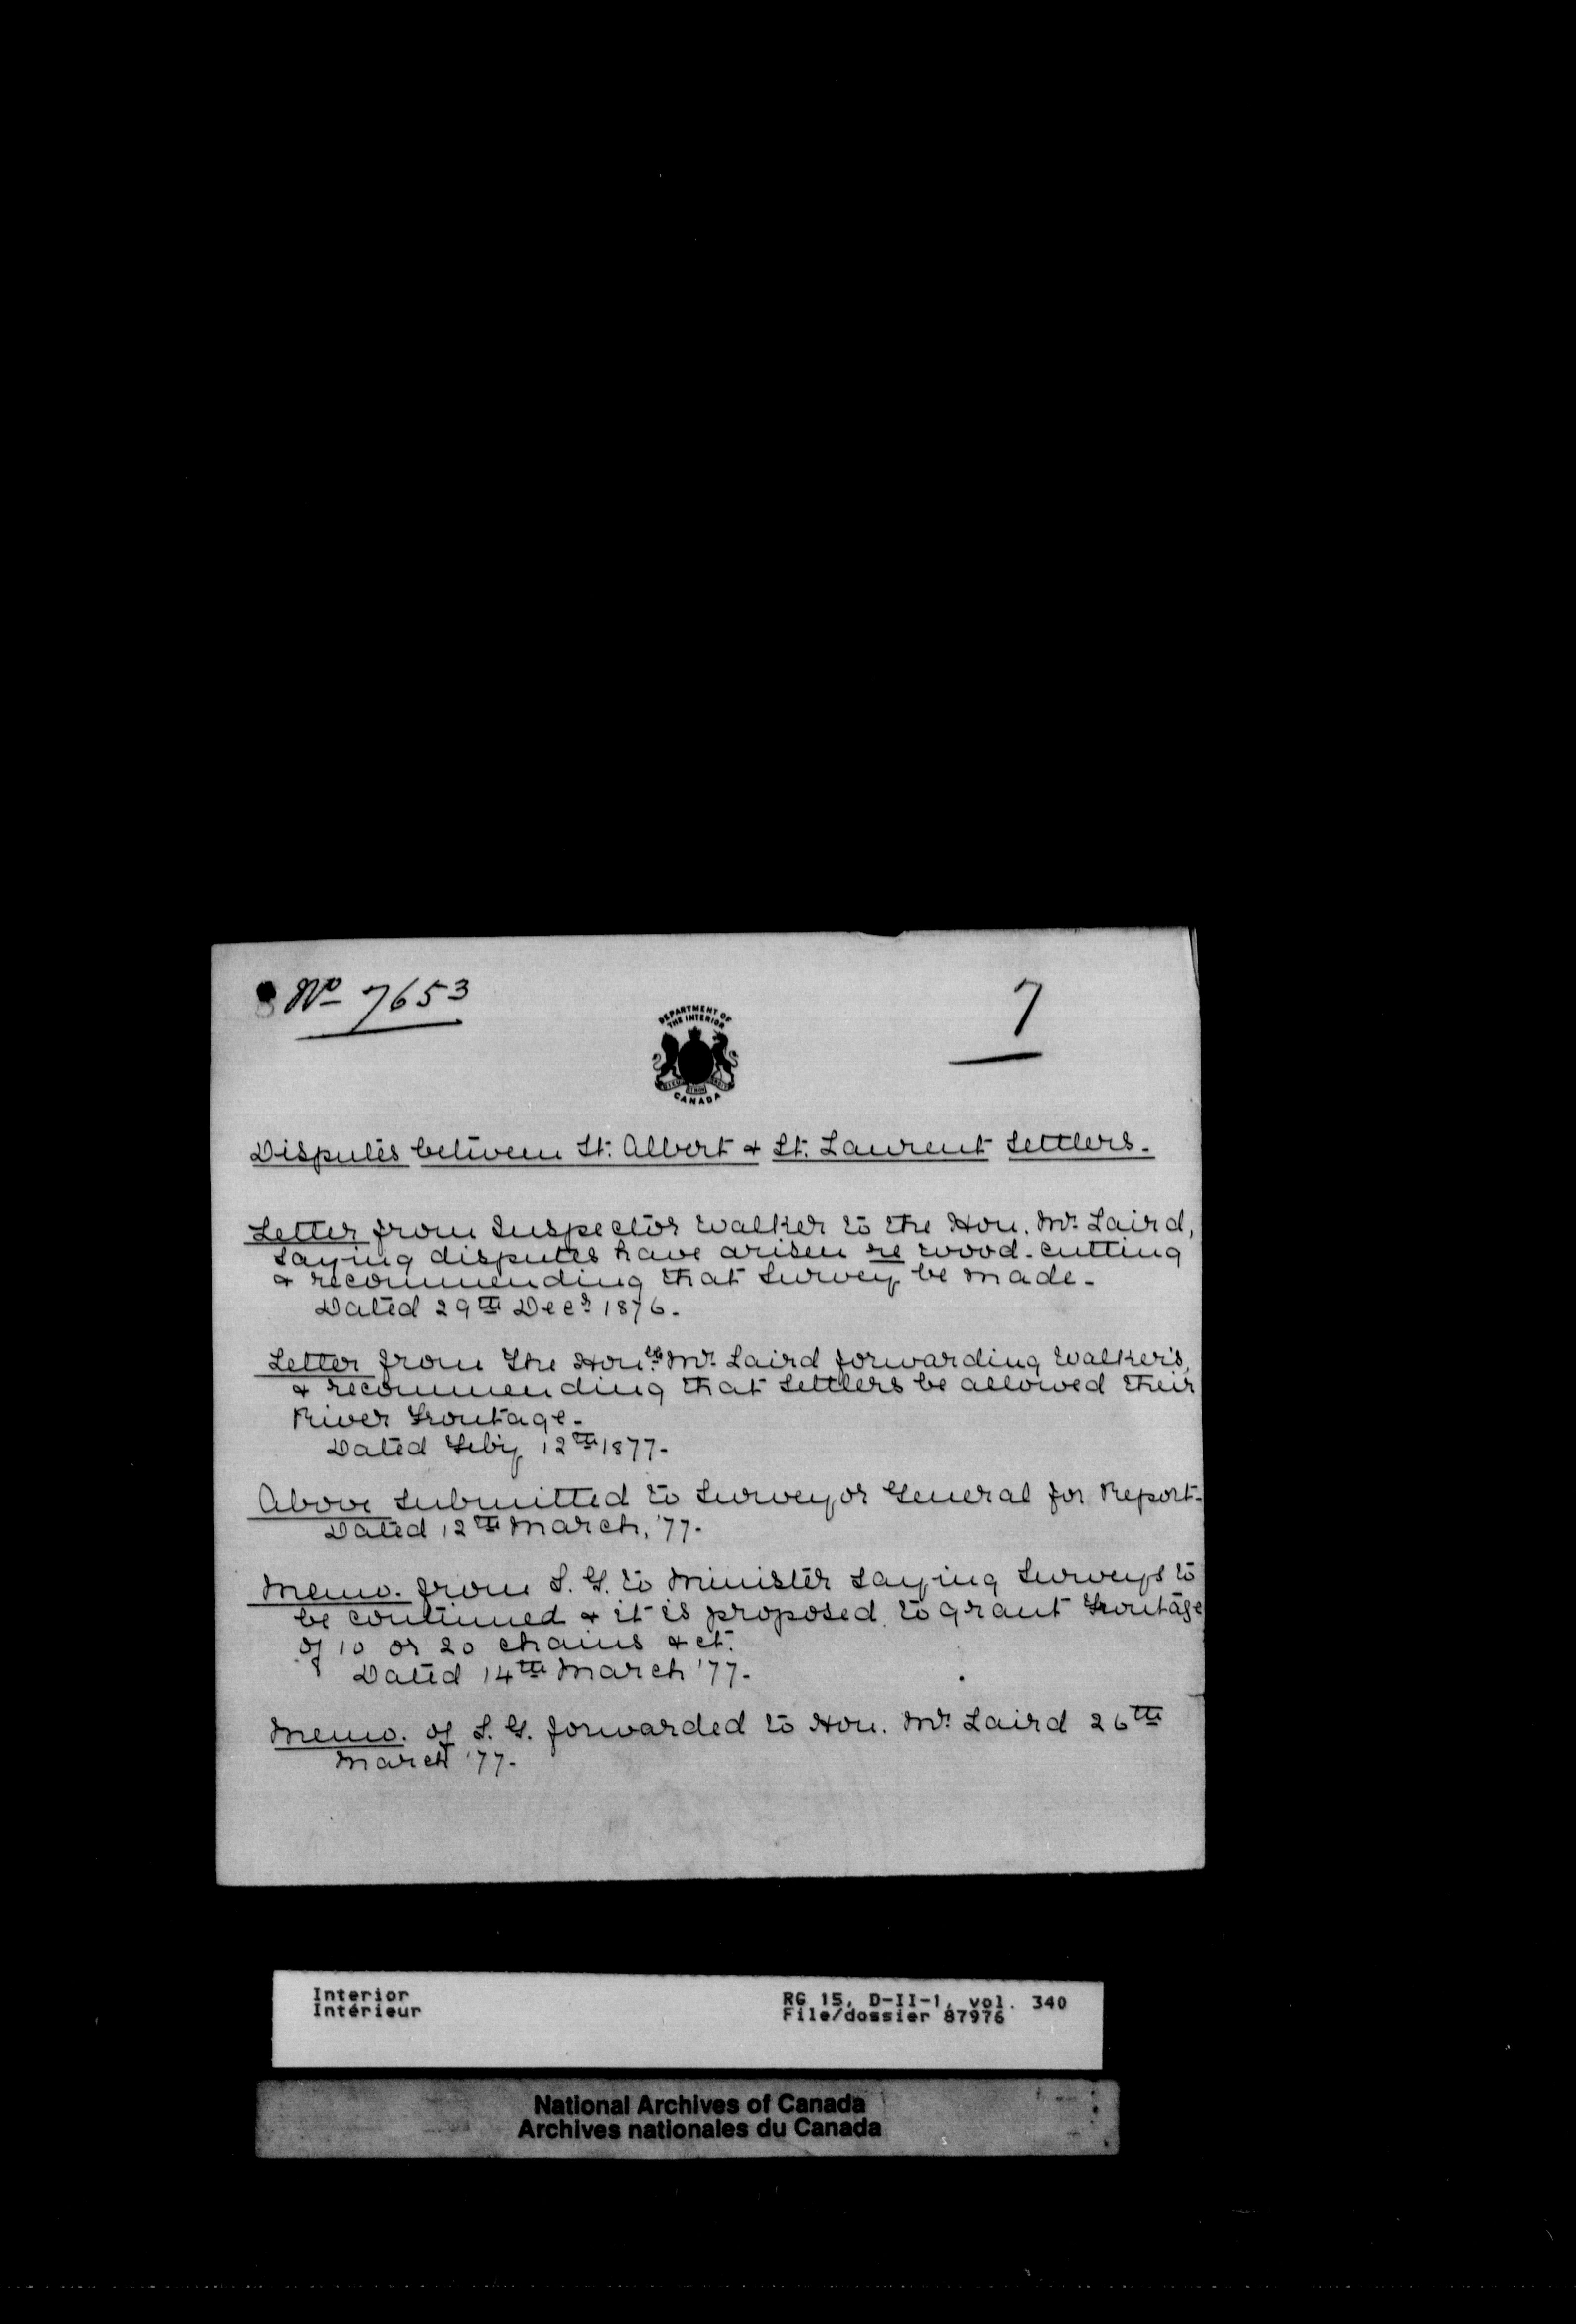 No 7653
7
DEPARTMENT OF
THE INTERIOR
CANADA
Disputes between St. Albert & St. Laurent Settlers.
Letter from Inspector Walker to the Hon. Mr. Laird,
saying disputes have arisen re wood-cutting
& recommending that Survey be made.
Dated 29th Decr. 1876.
Letter from The Honble. Mr. Laird forwarding Walker's,
& recommending that Settlers be allowed their
River Frontage.
Dated Feb'y 12th 1877.
Above submitted to Surveyor General for Report.
Dated 12th March, '77.
Memo. from S. G. to Minister saying Surveys to
be continued & it is proposed to grant Frontage
of 10 or 20 chains & ct.
Dated 14th March '77.
Memo. of S. G. forwarded to Hon. Mr. Laird 26th
March '77.
Interior
Intérieur
RG 15, D-II-1, vol. 340
File/dossier 87976
National Archives of Canada
Archives nationales du Canada